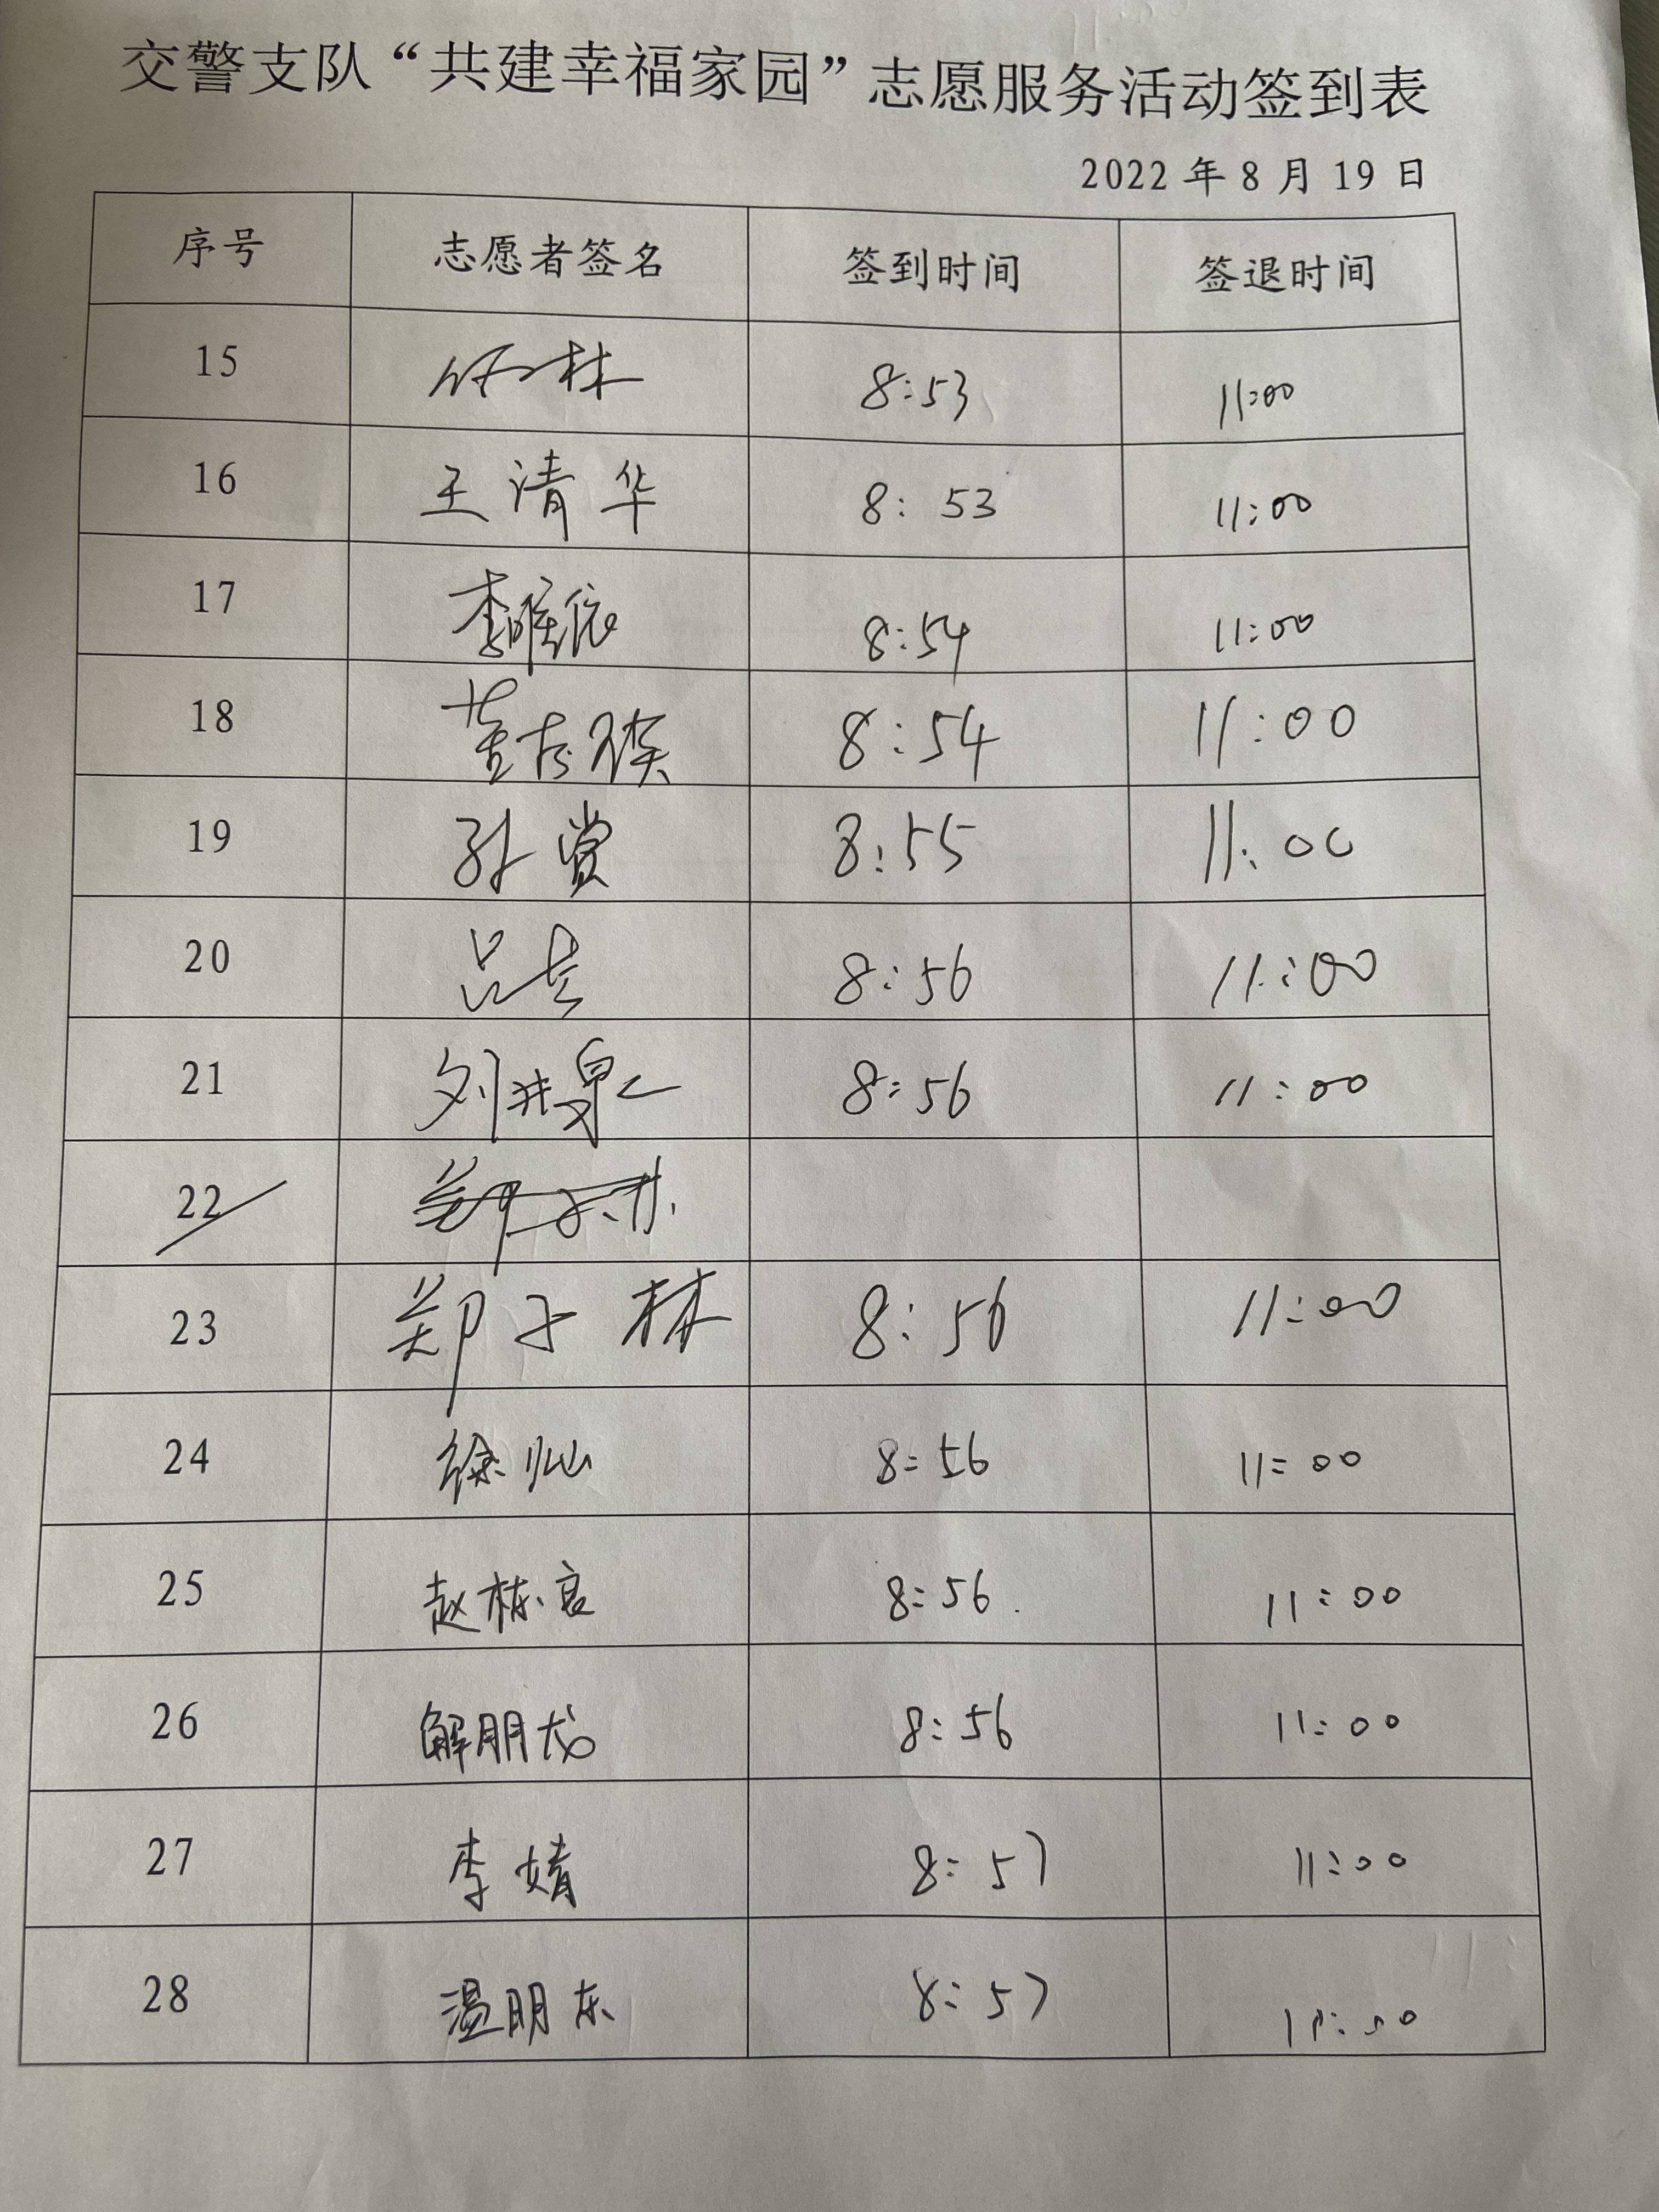 交警支队“共建幸福家园”志愿服务活动签到表
2022 年 8 月 19 日
序号 志愿者签名 签到时间 签退时间
15 林 8:53 11:00
16 王清华 8:53 11:00
17 李唯依 8:54 11:00
18 董 8:54 11:00
19 孙赏 8:55 11:00
20 吕 8:56 11:00
21 刘洪泉 8:56 11:00
22
23 郑子林 8:56 11:00
24 徐灿 8:56 11:00
25 赵栋良 8:56 11:00
26 解朋龙 8:56 11:00
27 李婧 8:57 11:00
28 温明东 8:57 11:00